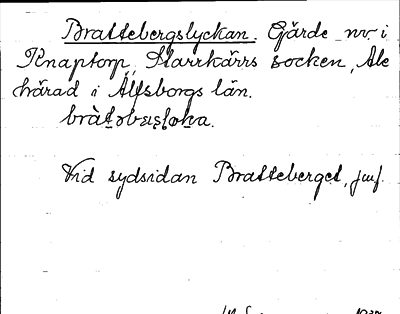 Brattebergslyckan. Gärde nv i
Knaptorp, Starrkärrs socken, Ale
härad i Älfsborgs län.
Vid sydsidan Bratteberget, jmf.